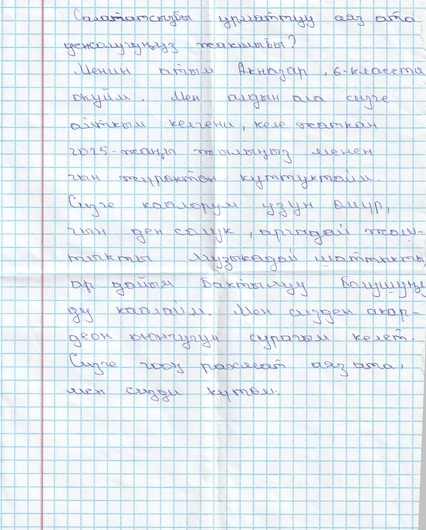 Саламатсызбы урматтуу аяз ата
денсолугуңуз жакшыбы?
Менин атым Акназар, 6-класста
окуйм. Мен алдын ала сизге
айткым келгени, келе жаткан
2025-жаңы жылыңыз менен
чын жүрөктөн куттуктайм.
Сизге каалорум узун өмүр,
чын ден солук, аргадай жош-
тыкты музыкадай шаттыкты,
ар дайым бактылуу болушуңу
зду каалайм. Мен сизден акар-
деон оюнчугун сурагым келет.
Сизге чоң рахмат аяз ата,
мен сизди күтөм.